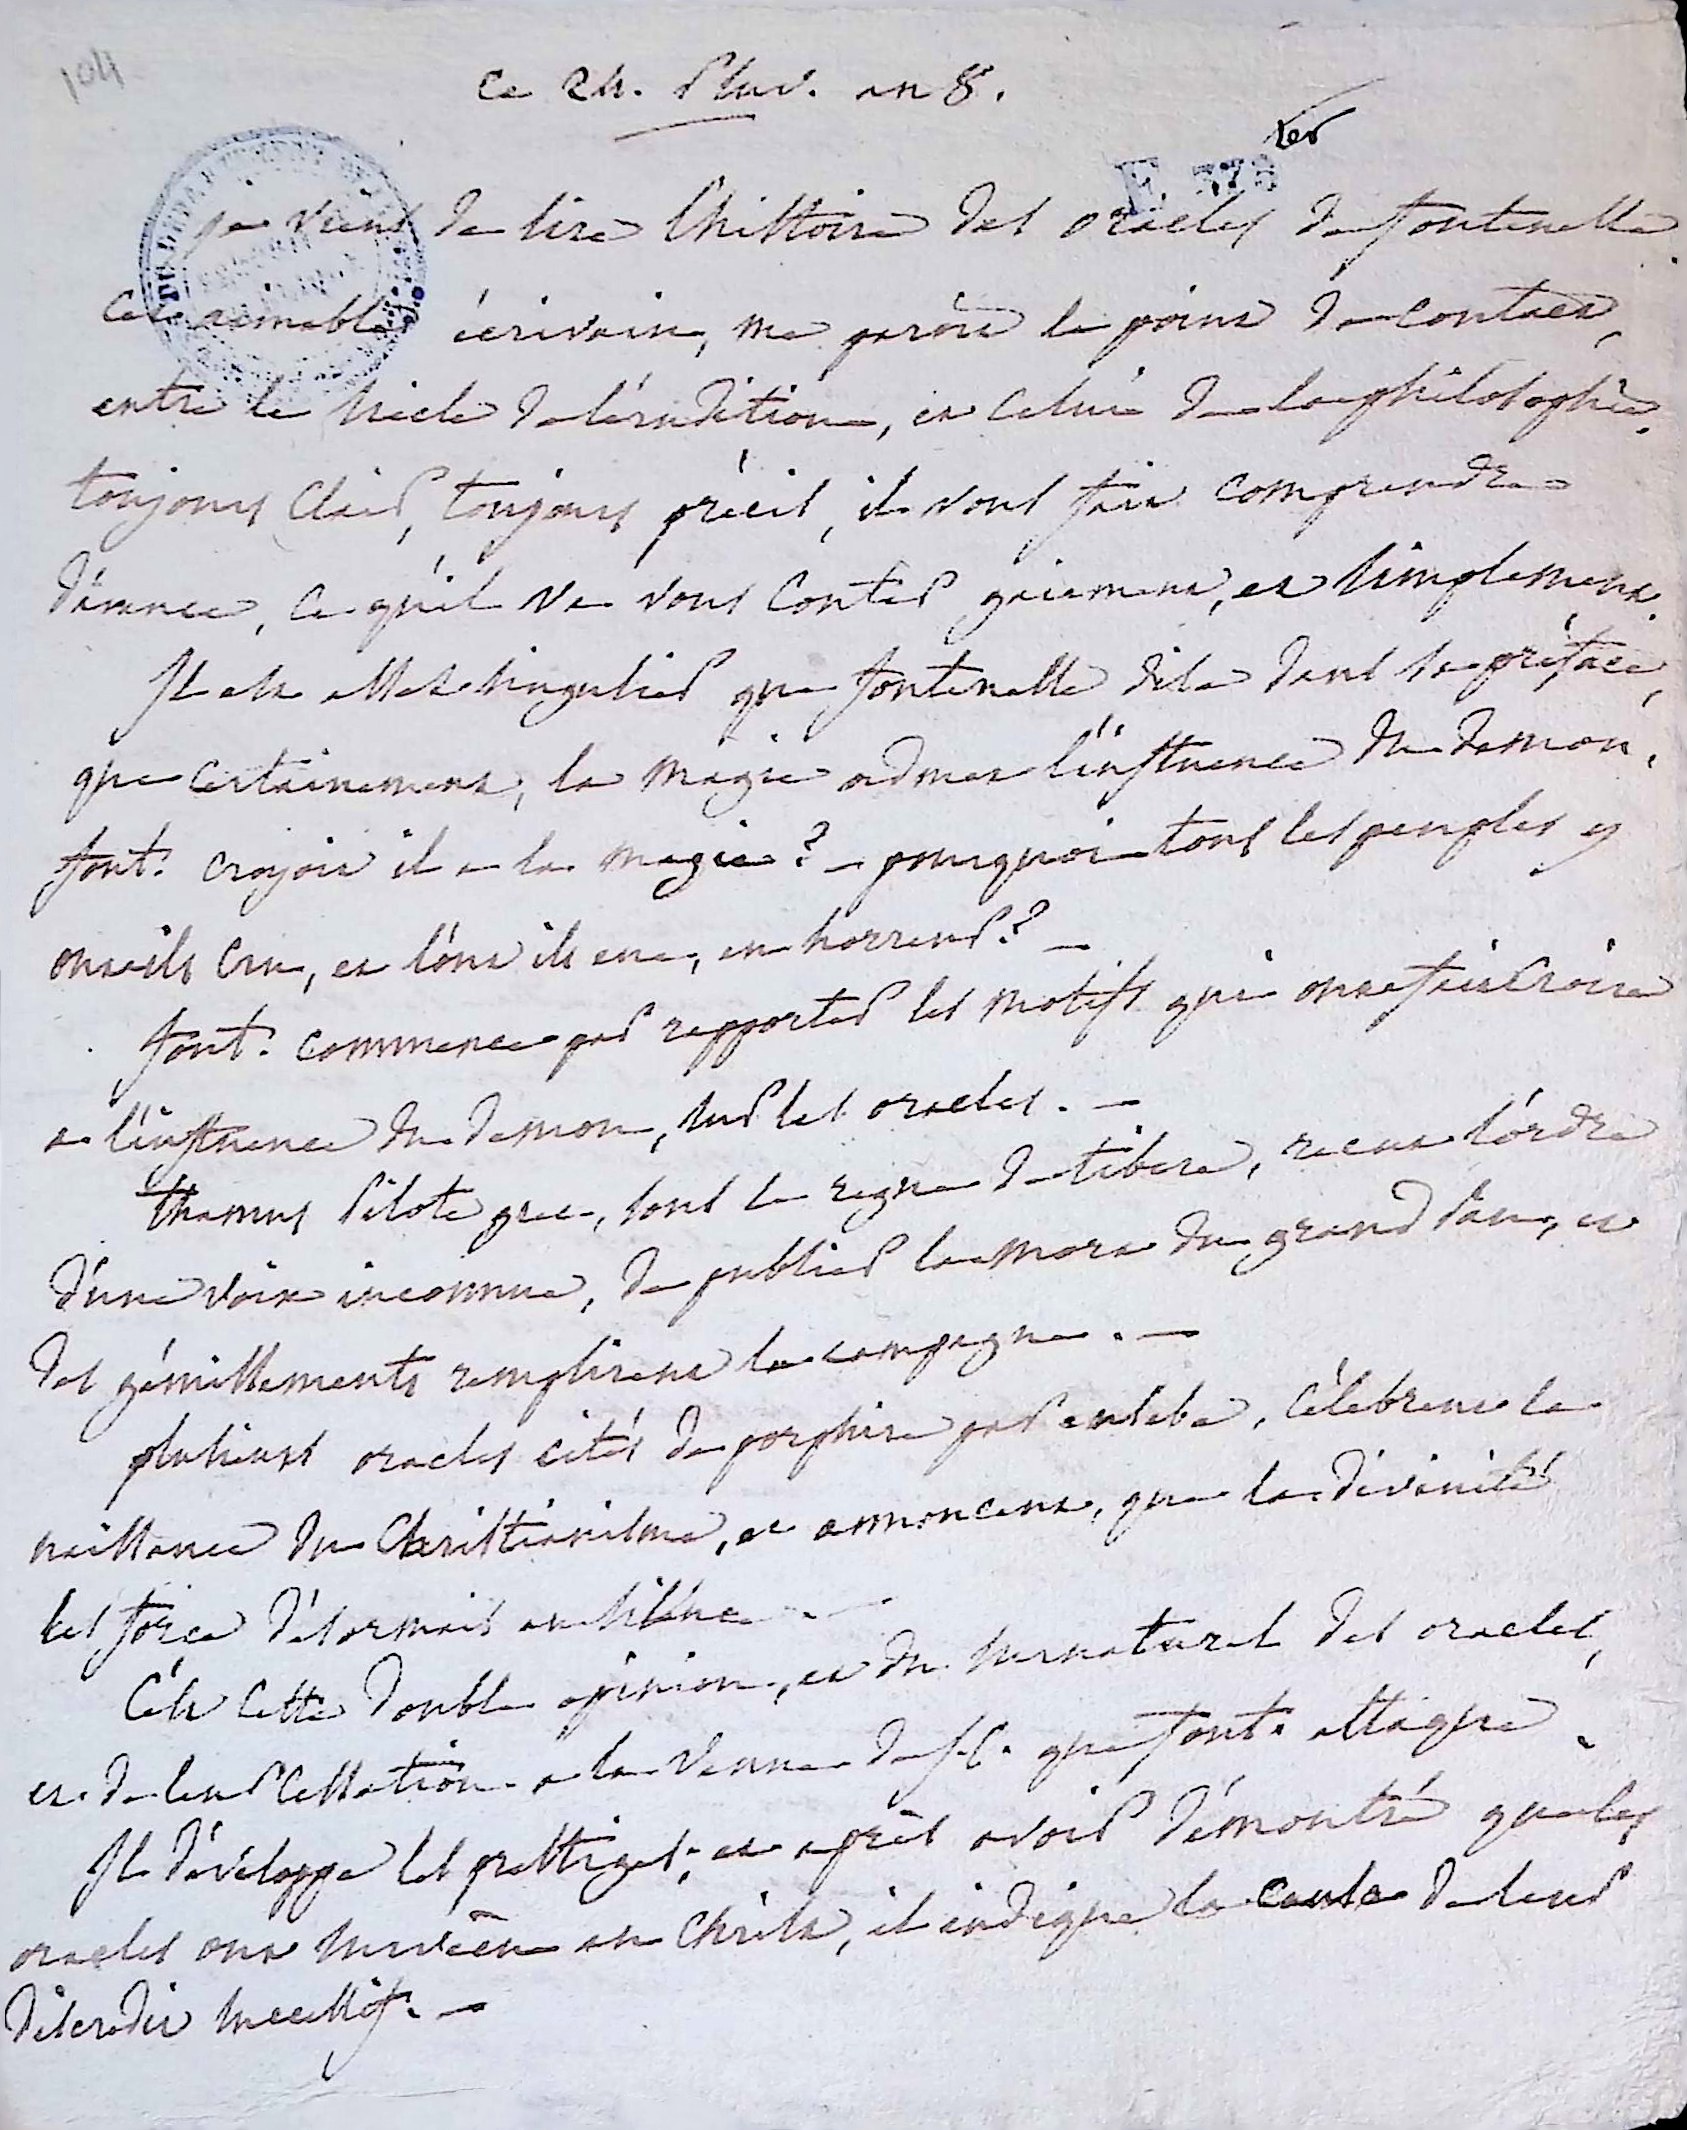 104
Ce 24. Pluv. an 8.
ter
F 375
je viens de lire l'histoire des oracles de fontenelle.
Cet aimable écrivain, me paroît le point de contact,
entre le siècle de l'érudition, et celui de la philosophie.
toujours clair, toujours précis, il vous fait comprendre
d'avance, ce qu'il va vous conter gaiement, et simplement.
Il est assez singulier que fontenelle dise dans sa préface,
que certainement, la magie admet l'influence du demon.
font. croyoit il a la magie ? - pourquoi tous les peuples y
ont ils cru, et l'ont ils eue, en horreur ? -
font. commence par rapporter les motifs qui ont fait croire
a l'influence du demon, sur les oracles. -
thamus pilote grec, sous le regne de tibere, recut l'ordre
d'une voix inconnue, de publier la mort du grand pan, et
des gémissements remplirent la campagne. -
plusieurs oracles cités de porphire par eusebe, célebrent la
naissance du Christianisme, et annoncent, que la divinité
les force désormais au silence. -
C'est cette double opinion, et du surnaturel des oracles,
et de leur cessation a la venue de J.C. que font. attaque.
Il développe les prestiges; et après avoir démontré que les
oracles ont survécu au Christ, il indique la cause de leur
discrédit successif. -